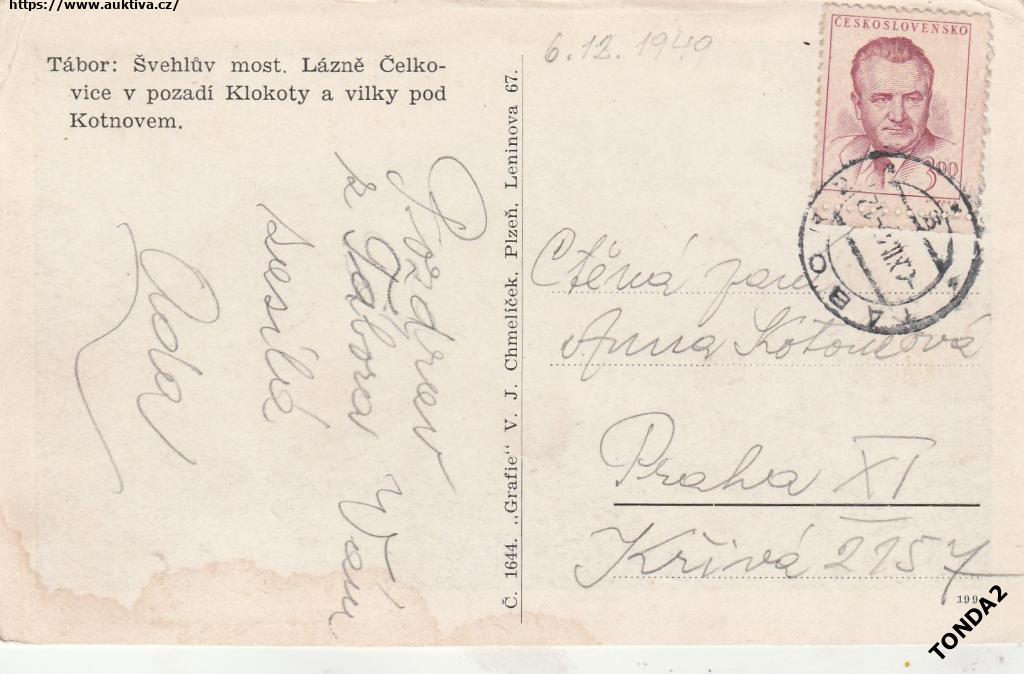 https://www.auktiva.cz/
Tábor: Švehlův most. Lázně Čelko-
vice v pozadí Klokoty a vilky pod
Kotnovem.
6.12.1949
ČESKOSLOVENSKO
3.00
TÁBOR 2
Pozdrav
z Tábora Vám
sesílá
Ada
Č. 1644. „Grafie" V. J. Chmelíček, Plzeň, Leninova 67.
Ctěná paní
Anna
Praha XI
Křivá 2157
199
TONDA2